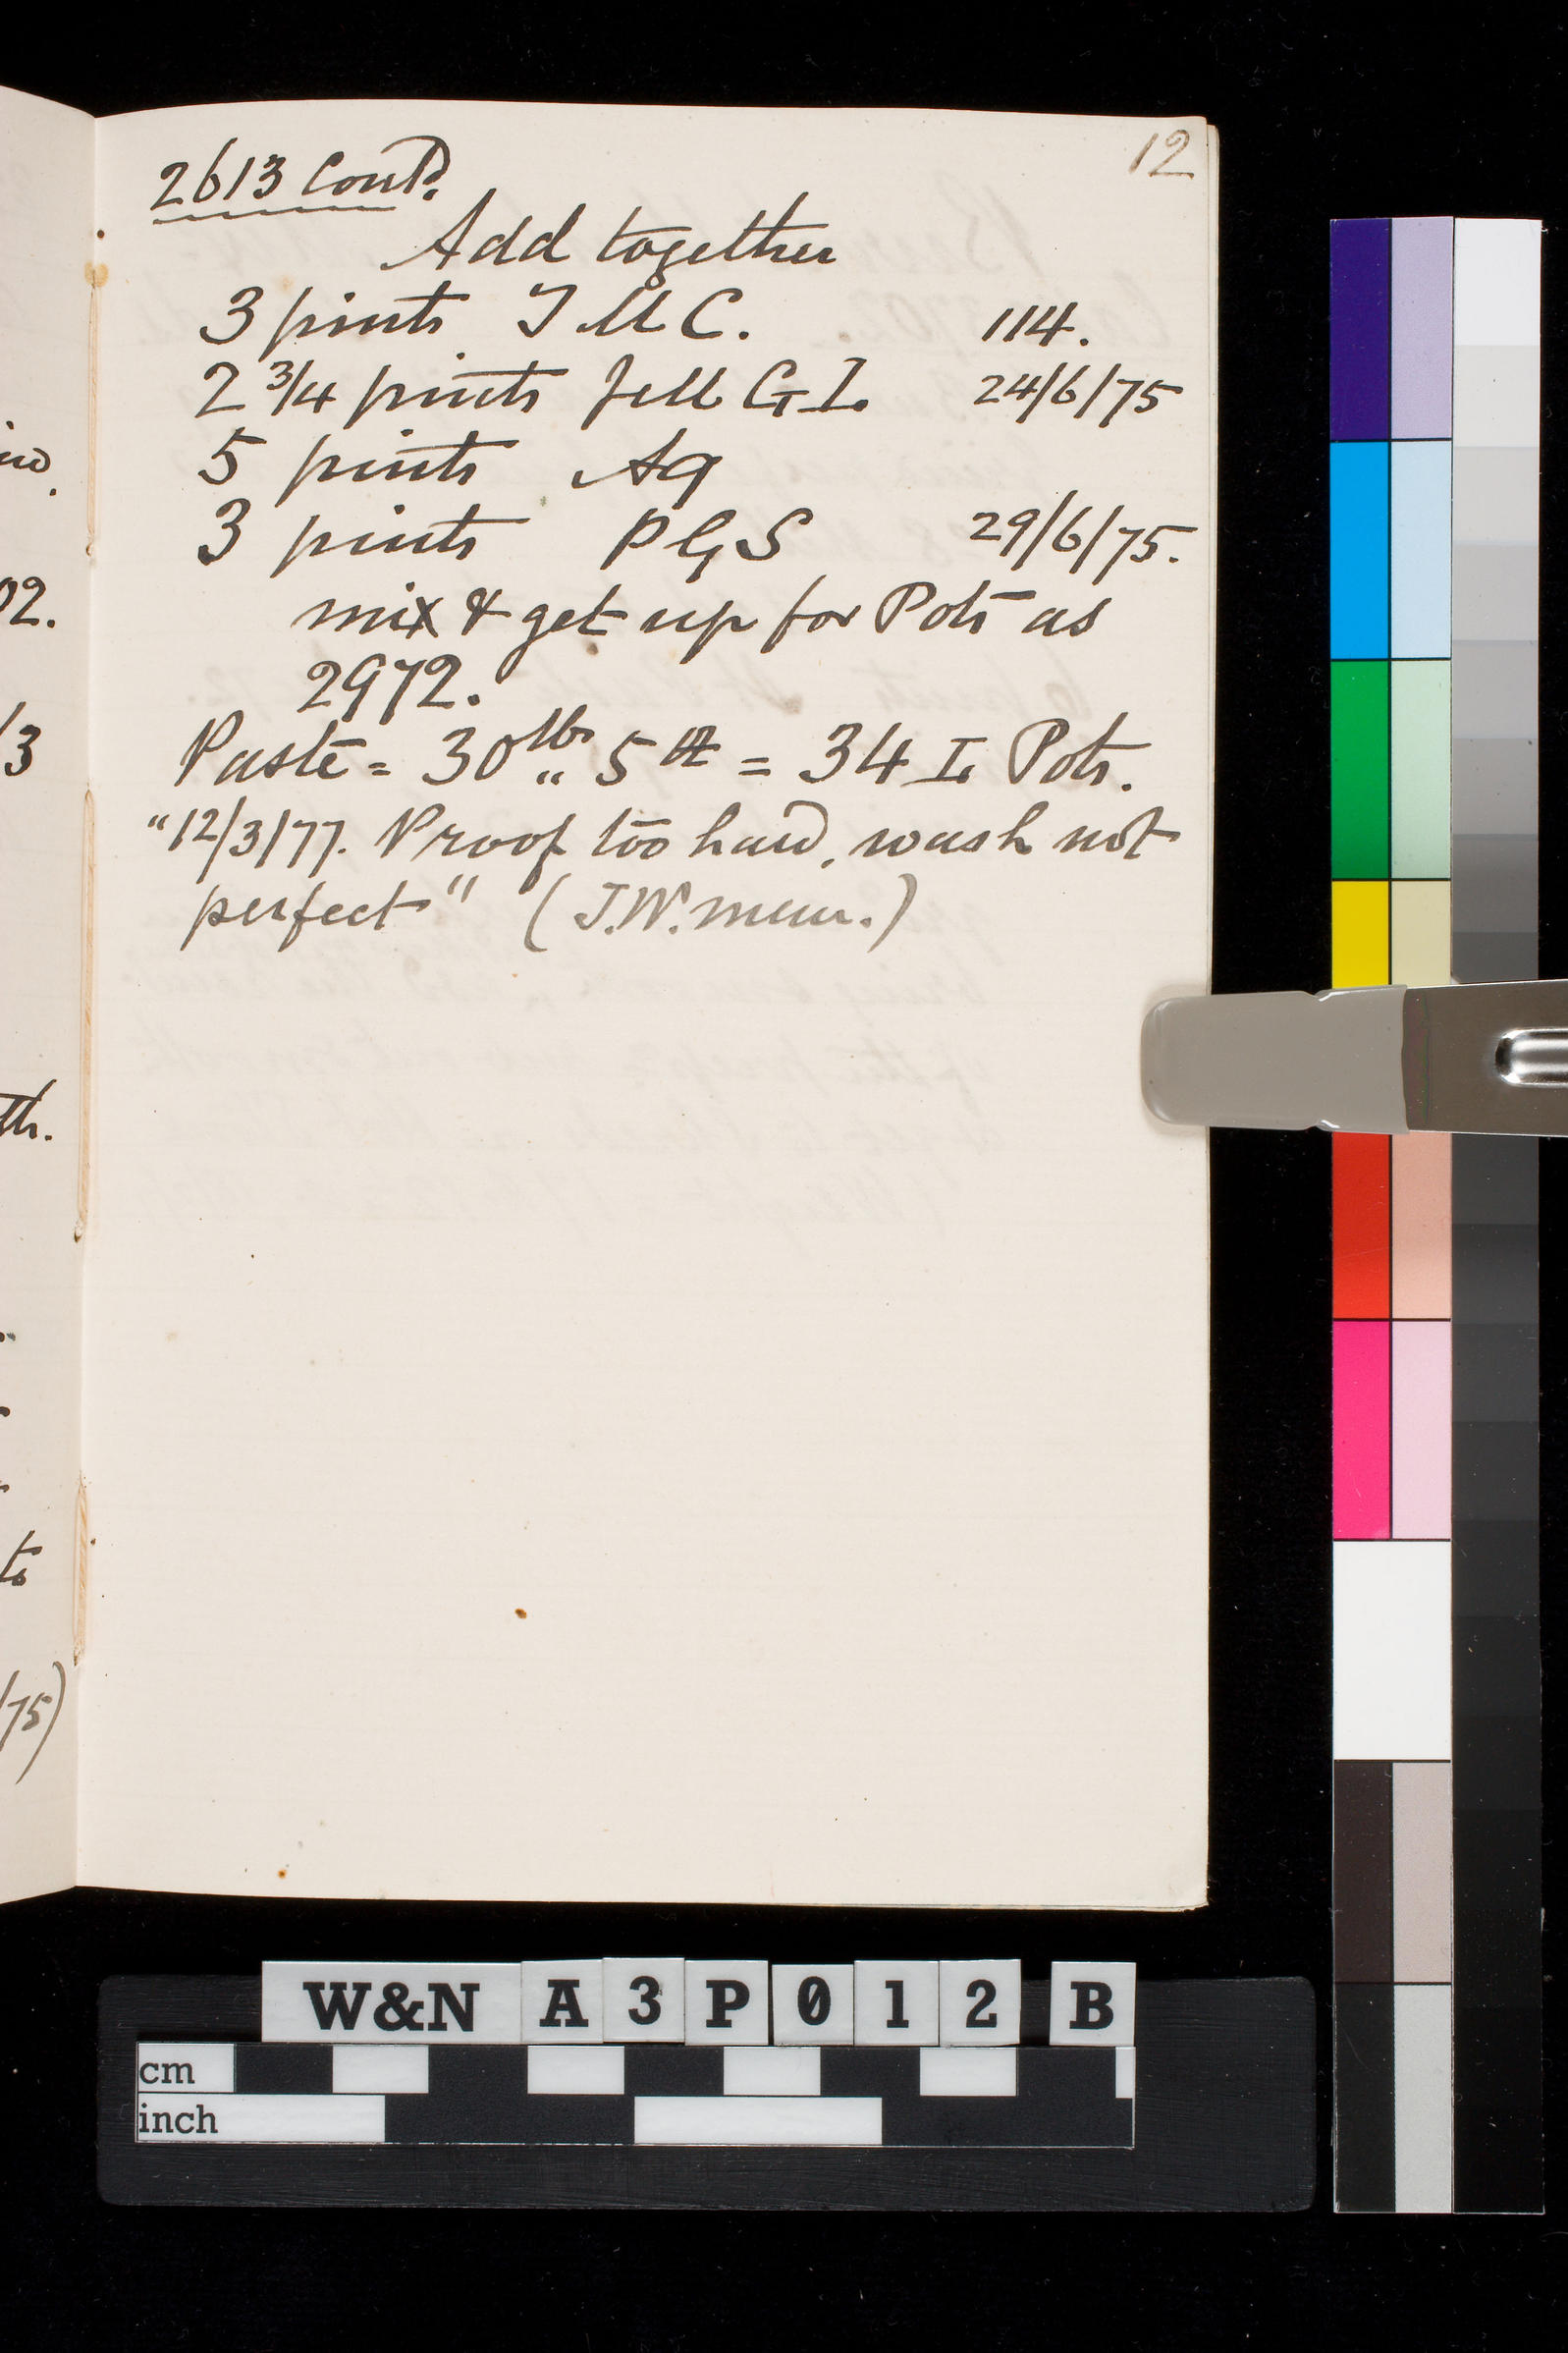 12
2613 Contd.
Add together
3 pints T M C. 114.
2 3/4 pints full G I. 24/6/75
5 pints Aq
3 pints P G S 29/6/75.
mix & get up for Pots as
2972.
Paste = 30 lbs „ 5 = 34 I. Pots.
"12/3/77. Proof too hard, wash not
perfect" (J.W. mem.)
02.
/3
th.
to
/75)
W&N A 3 P 0 1 2 B
cm
inch